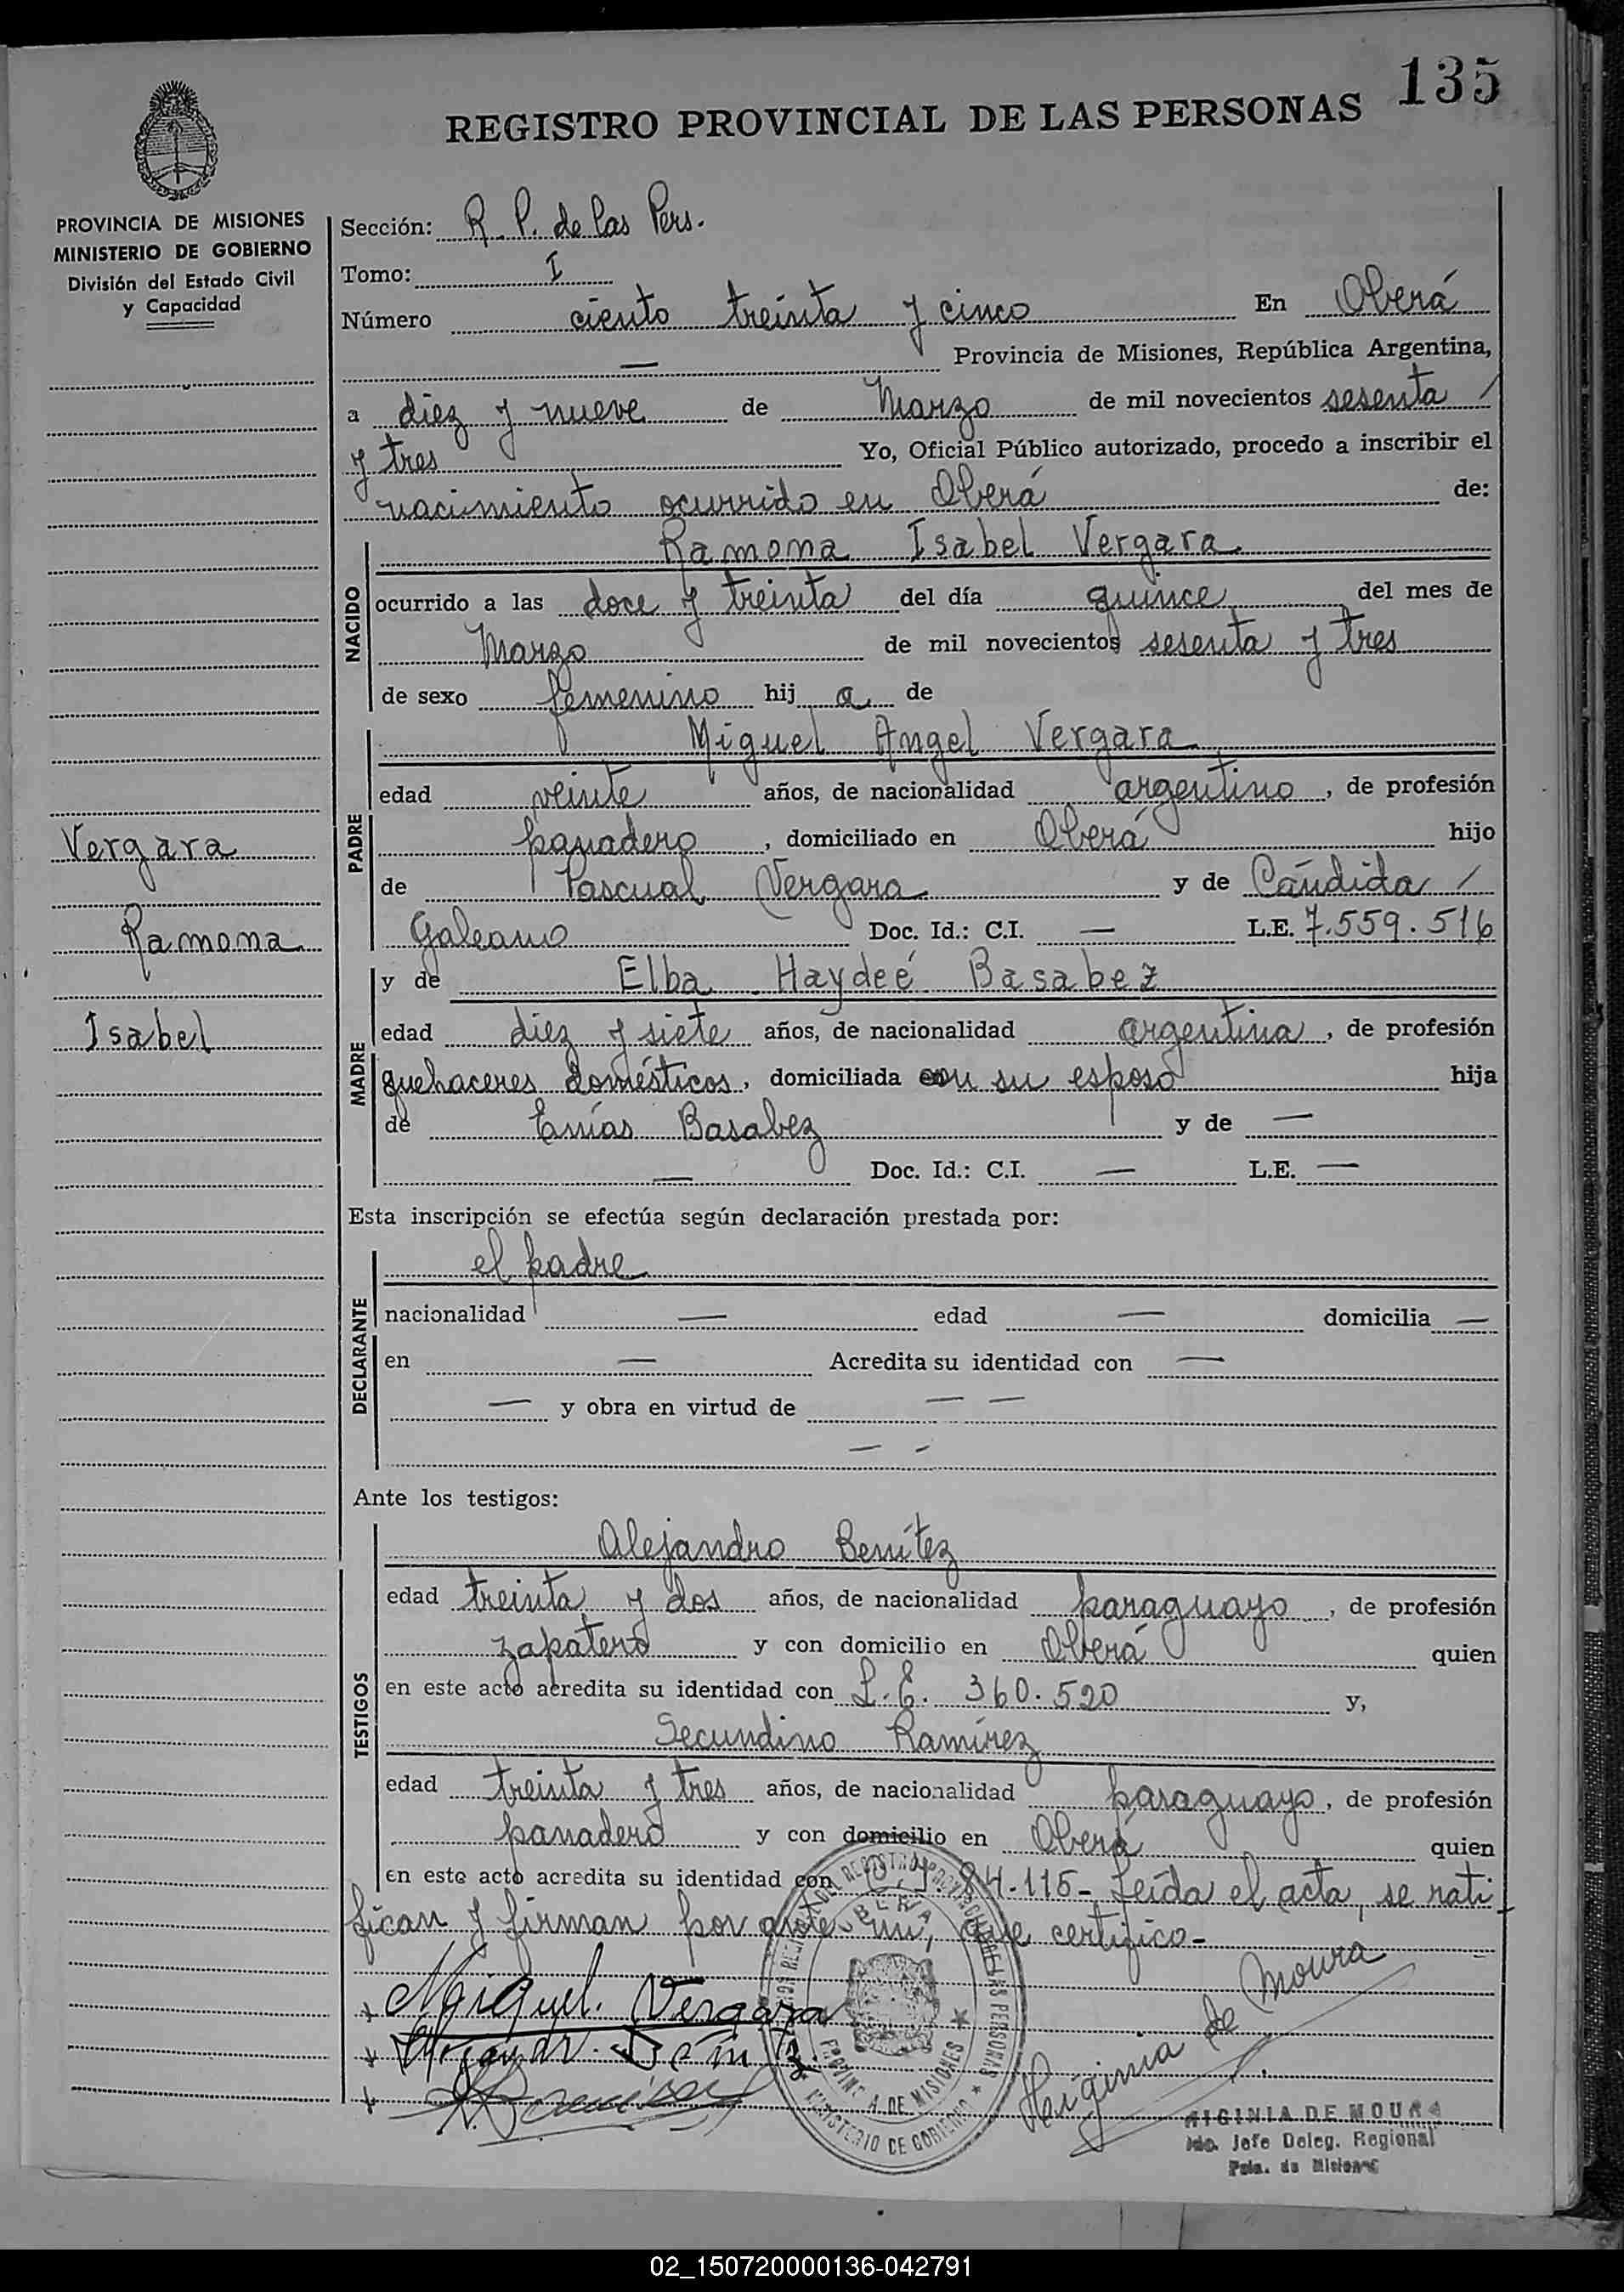 135
REGISTRO PROVINCIAL DE LAS PERSONAS
PROVINCIA DE MISIONES
MINISTERIO DE GOBIERNO
División del Estado Civil
y Capacidad
Sección: R. P. de las Pers.
Tomo: I
Número ciento treinta y cinco En Oberá
— Provincia de Misiones, República Argentina,
a diez y nueve de Marzo de mil novecientos sesenta /
y tres Yo, Oficial Público autorizado, procedo a inscribir el
nacimiento ocurrido en Oberá de:
NACIDO
Ramona Isabel Vergara
ocurrido a las doce y treinta del día quince del mes de
Marzo de mil novecientos sesenta y tres
de sexo femenino hij a de
PADRE
Miguel Angel Vergara
edad veinte años, de nacionalidad argentino, de profesión
panadero, domiciliado en Oberá hijo
de Pascual Vergara y de Cándida /
Galeano Doc. Id.: C.I. — L.E. 7.559.516
Vergara
Ramona
Isabel
MADRE
y de Elba Haydeé Basabez
edad diez y siete años, de nacionalidad argentina, de profesión
quehaceres domésticos, domiciliada con su esposo hija
de Basabez y de —
— Doc. Id.: C.I. — L.E. —
Esta inscripción se efectúa según declaración prestada por:
DECLARANTE
el padre
nacionalidad — edad — domicilia —
en — Acredita su identidad con —
— y obra en virtud de — —
— -
Ante los testigos:
TESTIGOS
Alejandro Benítez
edad treinta y dos años, de nacionalidad paraguayo, de profesión
zapatero y con domicilio en Oberá quien
en este acto acredita su identidad con L.E. 360.520 y,
Secundino Ramírez
edad treinta y tres años, de nacionalidad paraguayo, de profesión
panadero y con domicilio en Oberá quien
en este acto acredita su identidad con 84.115- Leída el acta, se rati
fican y firman por ante mi, que certifico-
Miguel. Vergara
Higinia de Moura
OBERA
PROVINCIA DE MISIONES
MINISTERIO DE GOBIERNO
HIGINIA DE MOURA
Jefe Deleg. Regional
Pcia. de Misiones
02_150720000136-042791